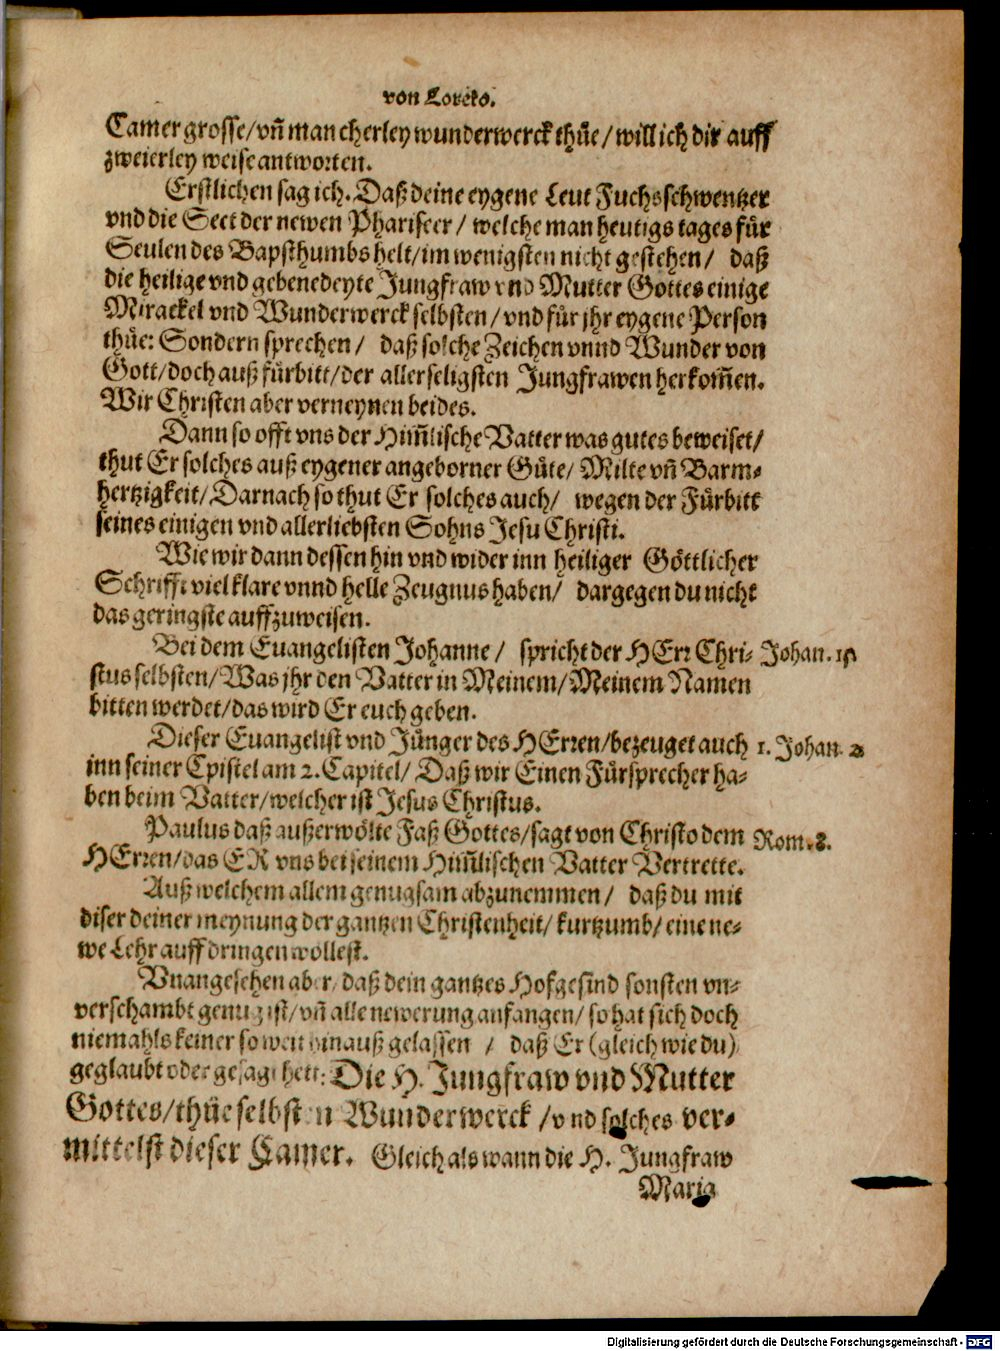 von Loreto.
Camer grosse/vñ mancherley wunderwerck thüe/will ich dir auff
zweierley weise antworten.
Erstlichen sag ich. Daß deine eygene Leut Fuchsschwentzer
vnd die Sect der newen Phariseer/ welche man heutigs tages für
Seulen des Bapsthumbs helt/im wenigsten nicht gestehen/ daß
die heilige vnd gebenedeyte Jungfraw vnd Mutter Gottes einige
Mirackel vnd Wunderwerck selbsten/vnd für jhr eygene Person
thüe: Sondern sprechen/ daß solche Zeichen vnnd Wunder von
Gott/doch auß fürbitt/der allerseligsten Jungfrawen herkom̃en.
Wir Christen aber verneynen beides.
Dann so offt vns der Him̃lische Vatter was gutes beweiset/
thut Er solches auß eygener angeborner Güte/ Milte vñ Barm-
hertzigkeit/Darnach so thut Er solches auch/ wegen der Fürbitt
seines einigen vnd allerliebsten Sohns Jesu Christi.
Wie wir dann dessen hin vnd wider inn heiliger Göttlicher
Schrifft viel klare vnnd helle Zeugnus haben/ dargegen du nicht
das geringste auffzuweisen.
Bei dem Euangelisten Johanne/ spricht der HErr Chri- Johan.
stus selbsten/Was jhr den Vatter in Meinem/Meinem Namen
bitten werdet/das wird Er euch geben.
Dieser Euangelist vnd Jünger des HErren/bezeuget auch 1. Johan. 2
inn seiner Epistel am 2. Capitel/ Daß wir Einen Fürsprecher ha-
ben beim Vatter/welcher ist Jesus Christus.
Paulus daß außerwölte Faß Gottes/sagt von Christo dem Rom. 8.
HErren/das ER vns bei seinem Him̃lischen Vatter Vertrette.
Auß welchem allem genugsam abzunemmen/ daß du mit
diser deiner meynung der gantzen Christenheit/kurtzumb/eine ne-
we Lehr auffdringen wöllest.
Vnangesehen aber/daß dein gantzes Hofgesind sonsten vn-
verschambt genug ist/vñ alle newerung anfangen/so hat sich doch
niemahls keiner so weit hinauß gelassen / daß Er (gleich wie du)
geglaubt oder gesagt hett: Die H. Jungfraw vnd Mutter
Gottes/thüe selbsten Wunderwerck/vnd solches ver-
mittelst dieser Camer. Gleich als wann die H. Jungfraw
Maria
Digitalisierung gefördert durch die Deutsche Forschungsgemeinschaft - DFG